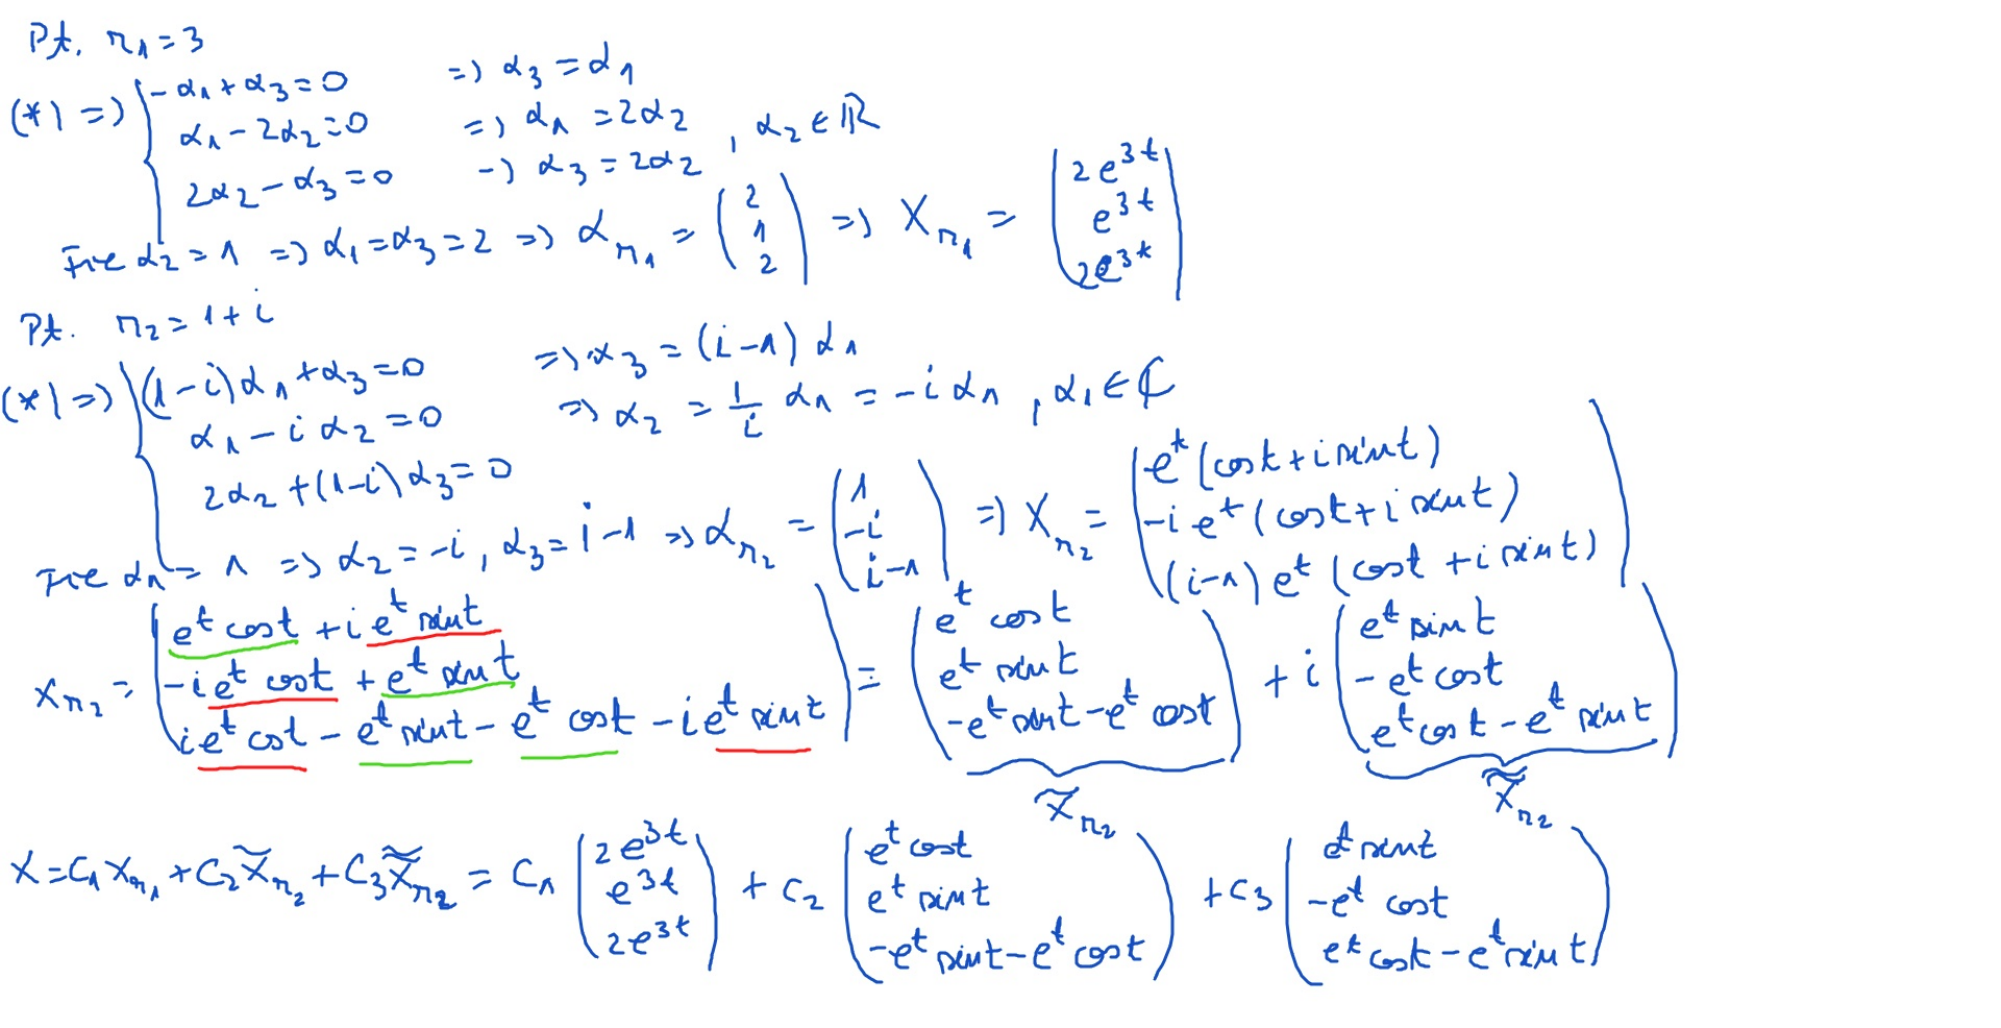 Pt. r₁ = 3
(*) => { -α₁ + α₃ = 0 => α₃ = α₁
α₁ - 2α₂ = 0 => α₁ = 2α₂ , α₂ ∈ ℝ
2α₂ - α₃ = 0 -) α₃ = 2α₂
Fie α₂ = 1 => α₁ = α₃ = 2 => α_r₁ = (2 1 2) => X_r₁ = (2e^3t e^3t 2e^3t)
Pt. r₂ = 1 + i
(*) => { (1-i)α₁ + α₃ = 0 => α₃ = (i-1) α₁
α₁ - i α₂ = 0 => α₂ = 1/i α₁ = -i α₁ , α₁ ∈ ℂ
2α₂ + (1-i) α₃ = 0
Fie α₁ = 1 => α₂ = -i , α₃ = i-1 => α_r₂ = (1 -i i-1) => X_r₂ = (e^t (cost + i sint) -i e^t (cost + i sint) (i-1) e^t (cost + i sint))
X_r₂ = (e^t cost + i e^t sint -i e^t cost + e^t sint i e^t cost - e^t sint - e^t cost - i e^t sint) = (e^t cost e^t sint -e^t sint - e^t cost) + i (e^t sint -e^t cost e^t cost - e^t sint)
X̃_r₂ X̃̃_r₂
X = C₁ X_r₁ + C₂ X̃_r₂ + C₃ X̃̃_r₂ = C₁ (2e^3t e^3t 2e^3t) + C₂ (e^t cost e^t sint -e^t sint - e^t cost) + C₃ (e^t sint -e^t cost e^t cost - e^t sint)